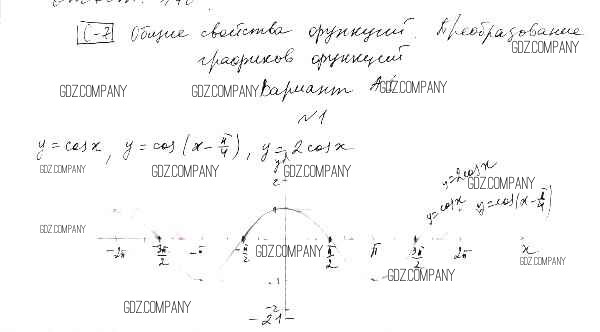 С-7 Общие свойства функций. Преобразование
GDZ.COMPANY
графиков функций
GDZ.COMPANY GDZ.COMPANY Вариант А1 GDZ.COMPANY
N1
y = cosx, y = cos(x - π/4), y = 2cosx
GDZ.COMPANY GDZ.COMPANY GDZ.COMPANY
y
2
y=2cosx
GDZ.COMPANY
y=cosx y=cos(x-π/4)
1
GDZ.COMPANY
-2π -3π/2 -π -π/2 GDZ.COMPANY π/2 π 3π/2 2π x
GDZ.COMPANY
GDZ.COMPANY
-1
GDZ.COMPANY
-2
-21-